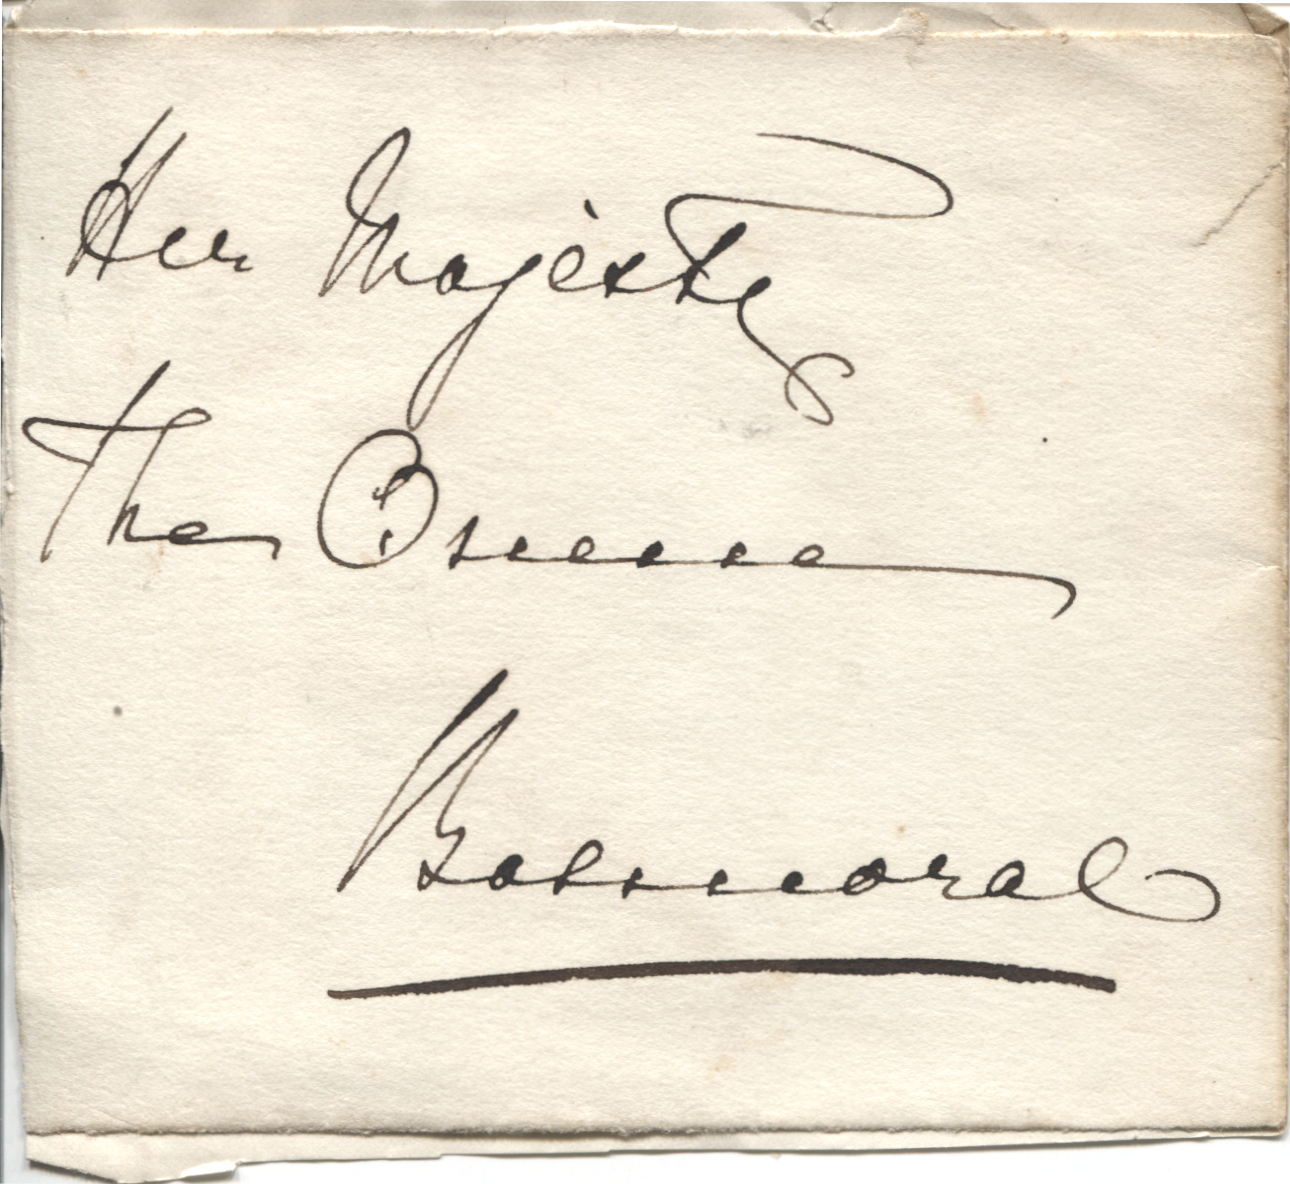 Her Majesty
The Queen
Balmoral